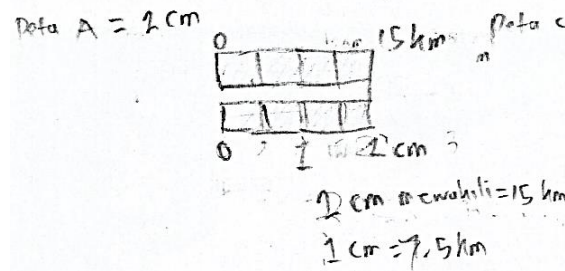 Peta A = 2 cm
0 15 km Peta c
0 1 2 cm
2 cm mewakili = 15 km
1 cm = 7,5 km